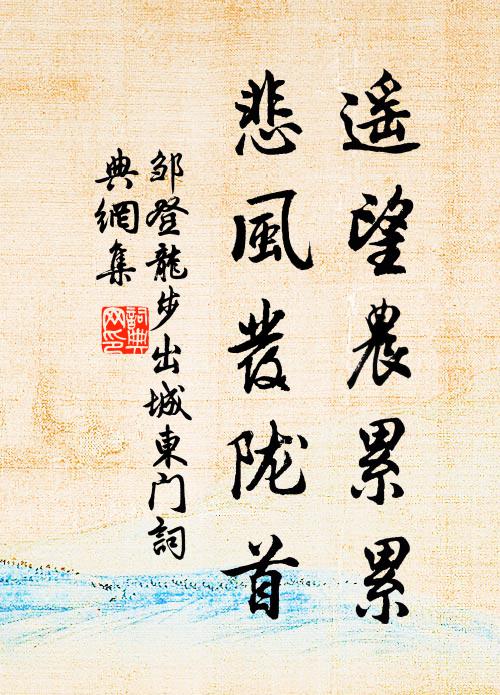 遥望農累累
悲風發陇首
邹登龍步出城東门詞
典網集
詞典
网印